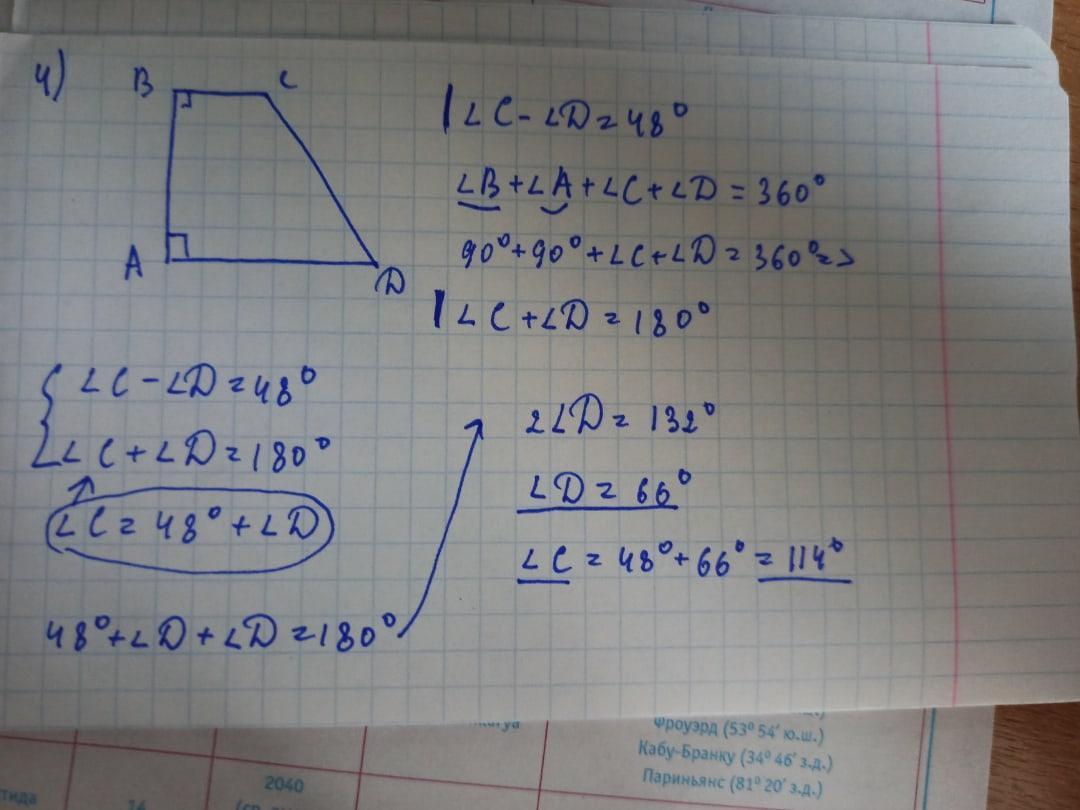 4)
B
C
A
D
∠C - ∠D = 48°
∠B + ∠A + ∠C + ∠D = 360°
90° + 90° + ∠C + ∠D = 360° =>
∠C + ∠D = 180°
∠C - ∠D = 48°
∠C + ∠D = 180°
∠C = 48° + ∠D
48° + ∠D + ∠D = 180°
2∠D = 132°
∠D = 66°
∠C = 48° + 66° = 114°
Фроуэрд (53° 54′ ю.ш.)
Кабу-Бранку (34° 46′ з.д.)
Париньянс (81° 20′ з.д.)
2040